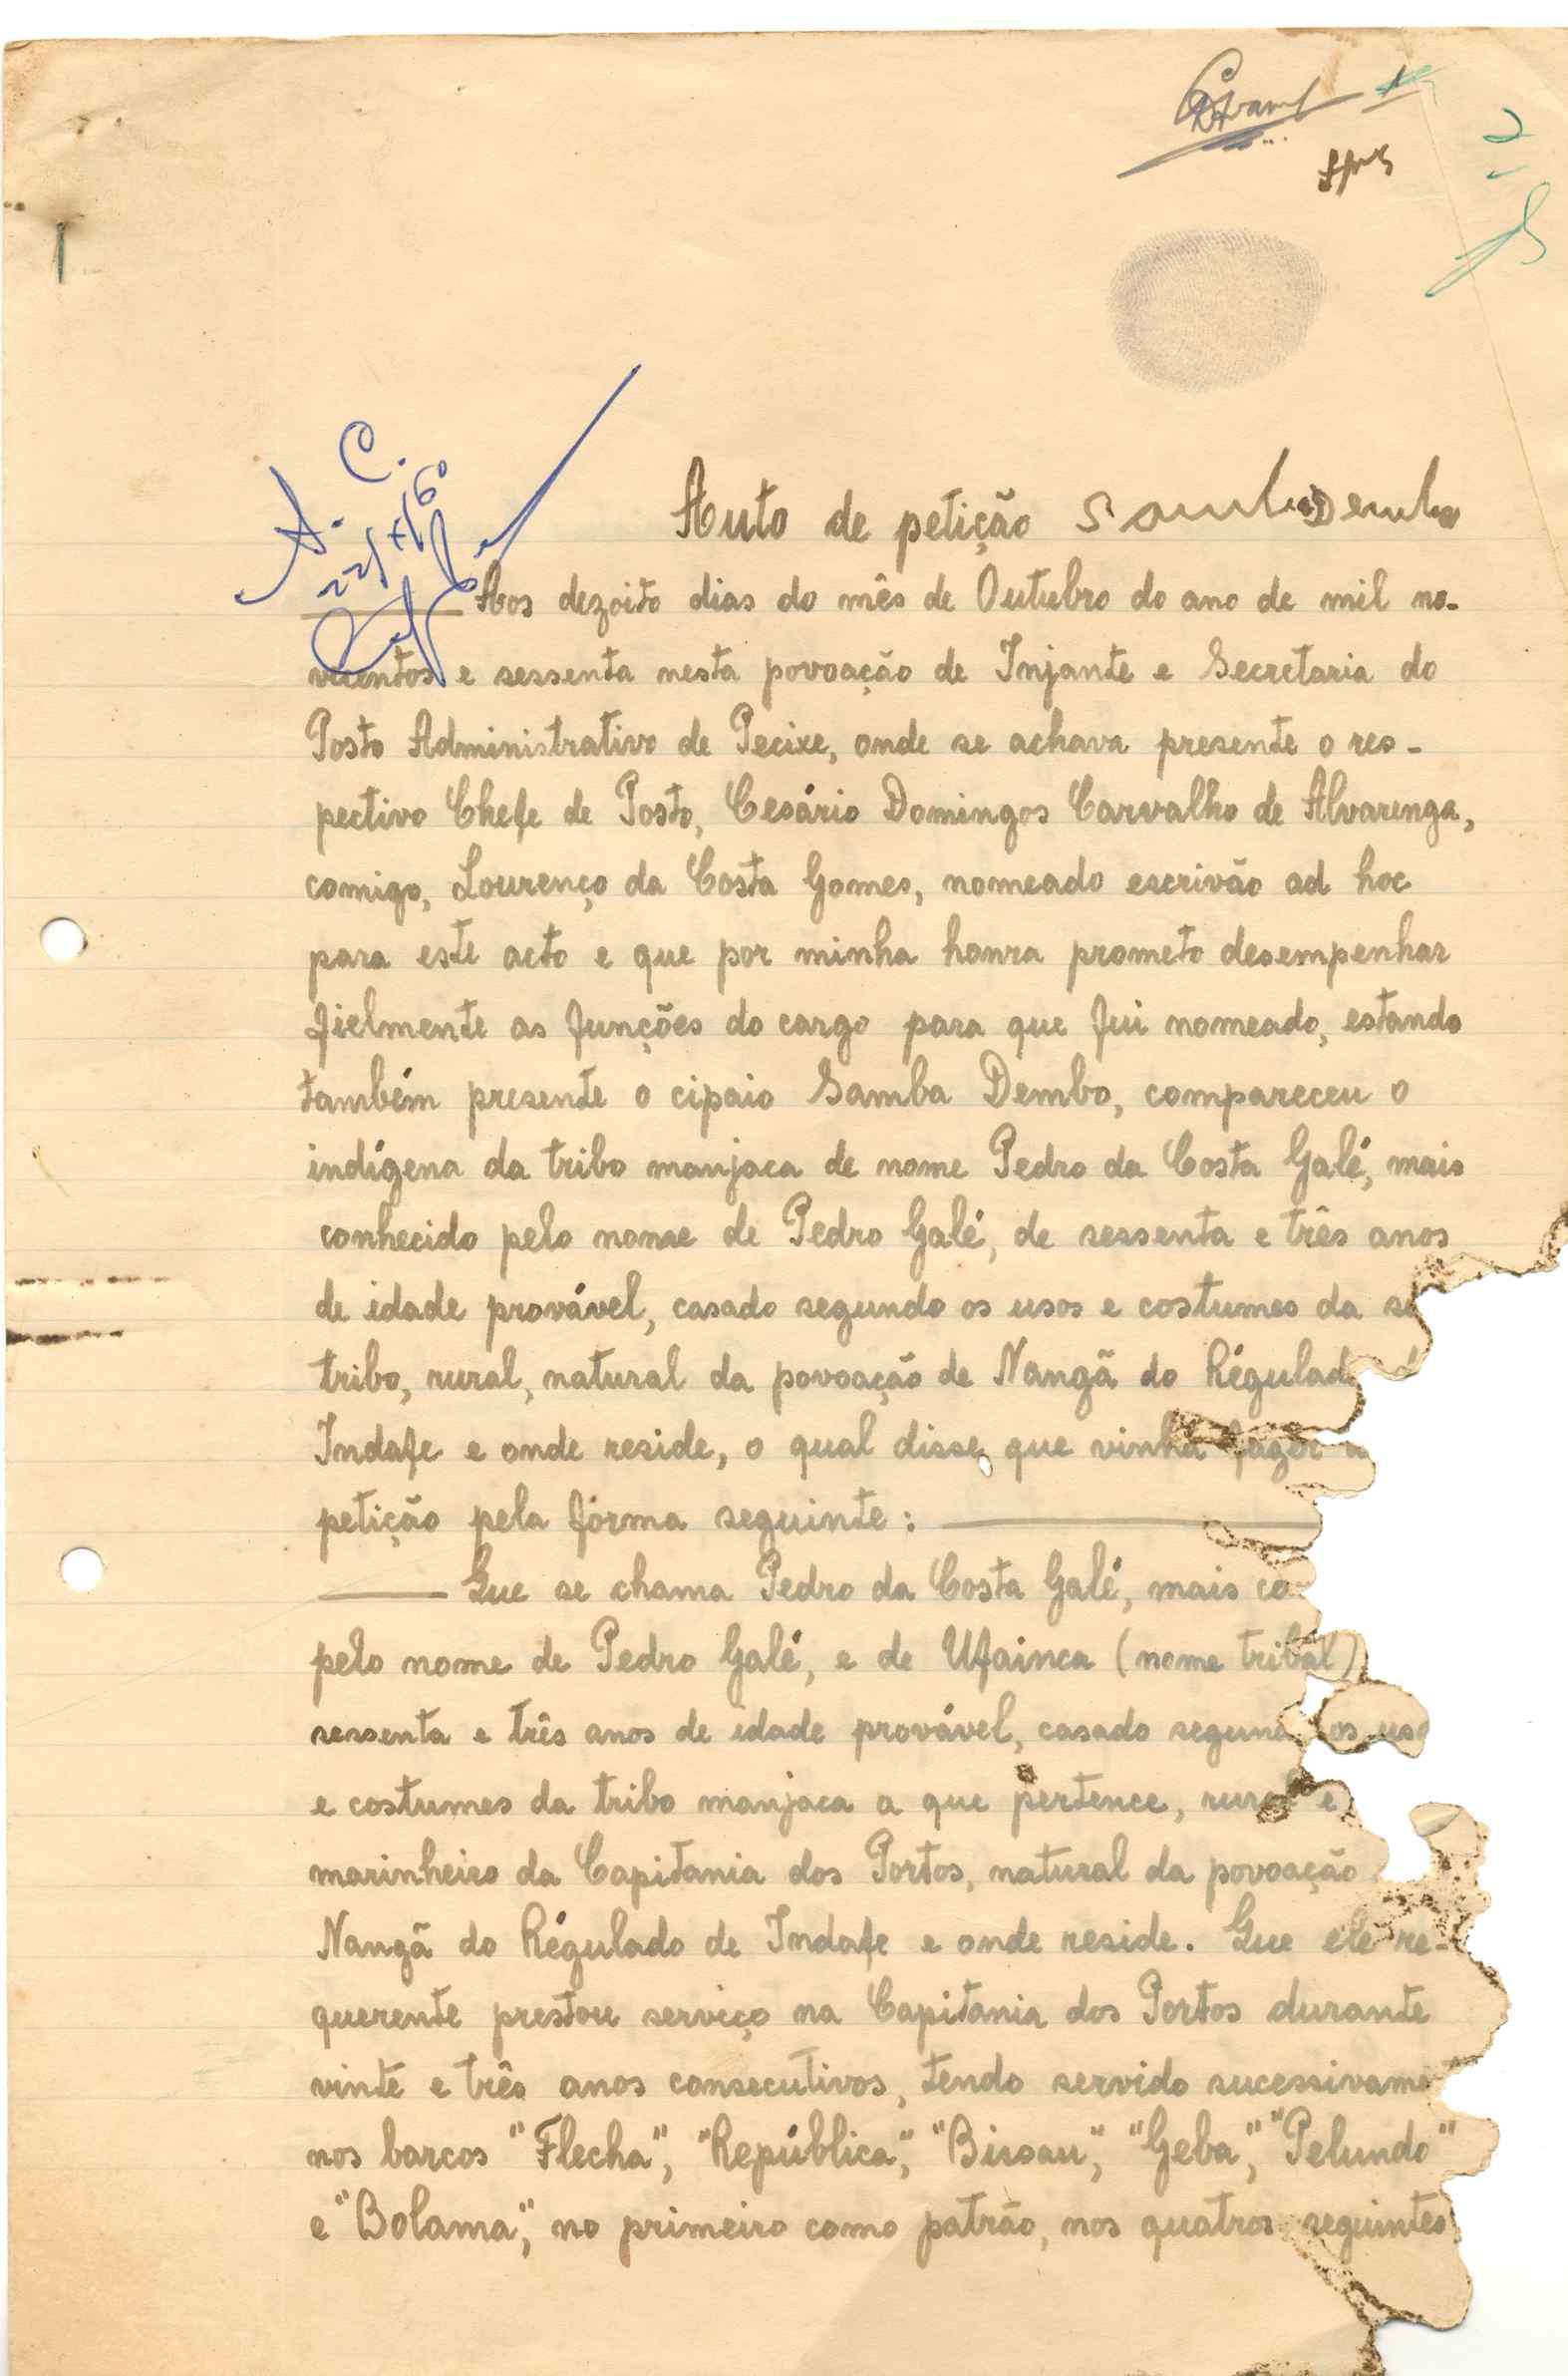 A. C.
22/X/60
Auto de petição Samba Dembo
Aos dezoito dias do mês de Outubro do ano de mil no-
vecentos e sessenta nesta povoação de Injante e Secretaria do
Posto Administrativo de Pecixe, onde se achava presente o res-
pectivo Chefe de Posto, Cesário Domingos Carvalho de Alvarenga,
comigo, Lourenço da Costa Gomes, nomeado escrivão ad hoc
para este acto e que por minha honra prometo desempenhar
fielmente as funções do cargo para que fui nomeado, estando
também presente o cipaio Samba Dembo, compareceu o
indígena da tribo manjaca de nome Pedro da Costa Galé, mais
conhecido pelo nome de Pedro Galé, de sessenta e três anos
de idade provável, casado segundo os usos e costumes da
tribo, rural, natural da povoação de Nangã do Régulad
Indafe e onde reside, o qual disse que vinha fazer
petição pela fórma seguinte:
Que se chama Pedro da Costa Galé, mais co
pelo nome de Pedro Galé, e de Ufainca (nome tribal)
sessenta e três anos de idade provável, casado segund os uso
e costumes da tribo manjaca a que pertence, rural e
marinheiro da Capitania dos Portos, natural da povoação
Nangã do Régulado de Indafe e onde reside. Que ele re-
querente prestou serviço na Capitania dos Portos durante
vinte e três anos consecutivos, tendo servido sucessivame
nos barcos "Flecha", "República", "Bissau", "Geba", "Pelundo"
e "Bolama", no primeiro como patrão, nos quatros seguintes